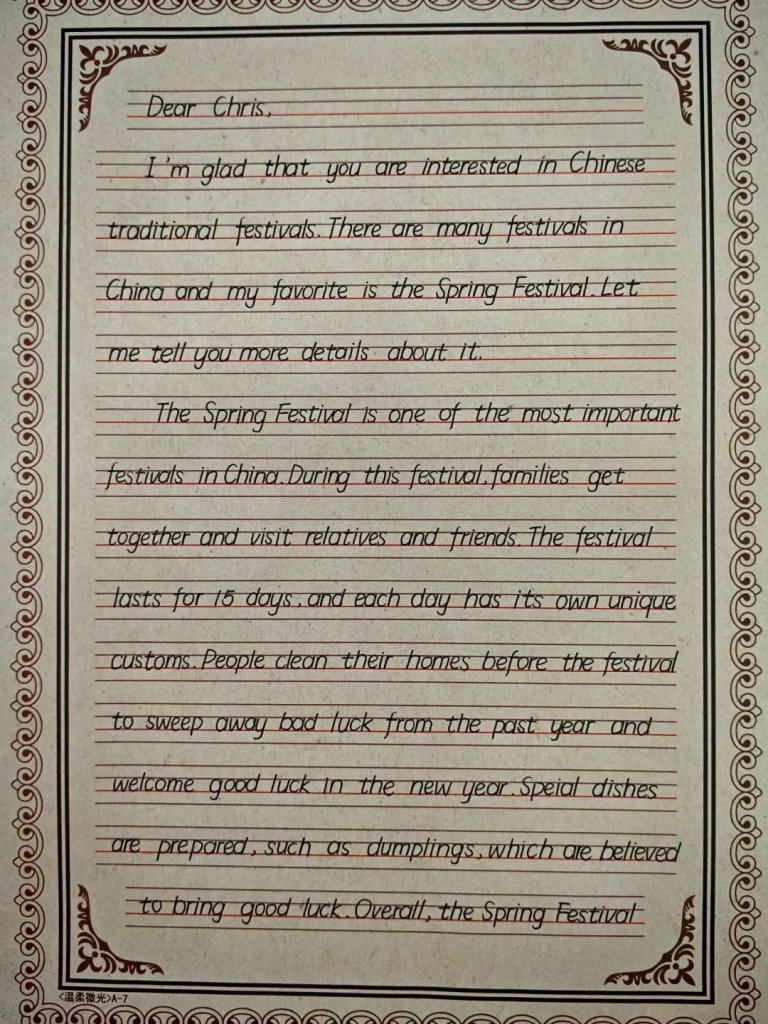 Dear Chris,
I'm glad that you are interested in Chinese
traditional festivals. There are many festivals in
China and my favorite is the Spring Festival. Let
me tell you more details about it.
The Spring Festival is one of the most important
festivals in China. During this festival, families get
together and visit relatives and friends. The festival
lasts for 15 days, and each day has its own unique
customs. People clean their homes before the festival
to sweep away bad luck from the past year and
welcome good luck in the new year. Speial dishes
are prepared, such as dumplings, which are believed
to bring good luck. Overall, the Spring Festival
<温柔微光>A-7